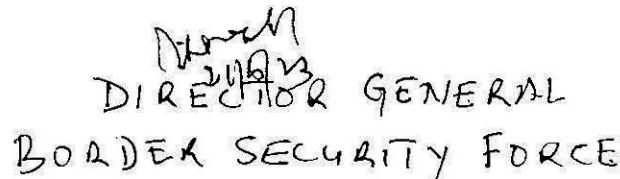 DIRECTOR GENERAL
BORDER SECURITY FORCE